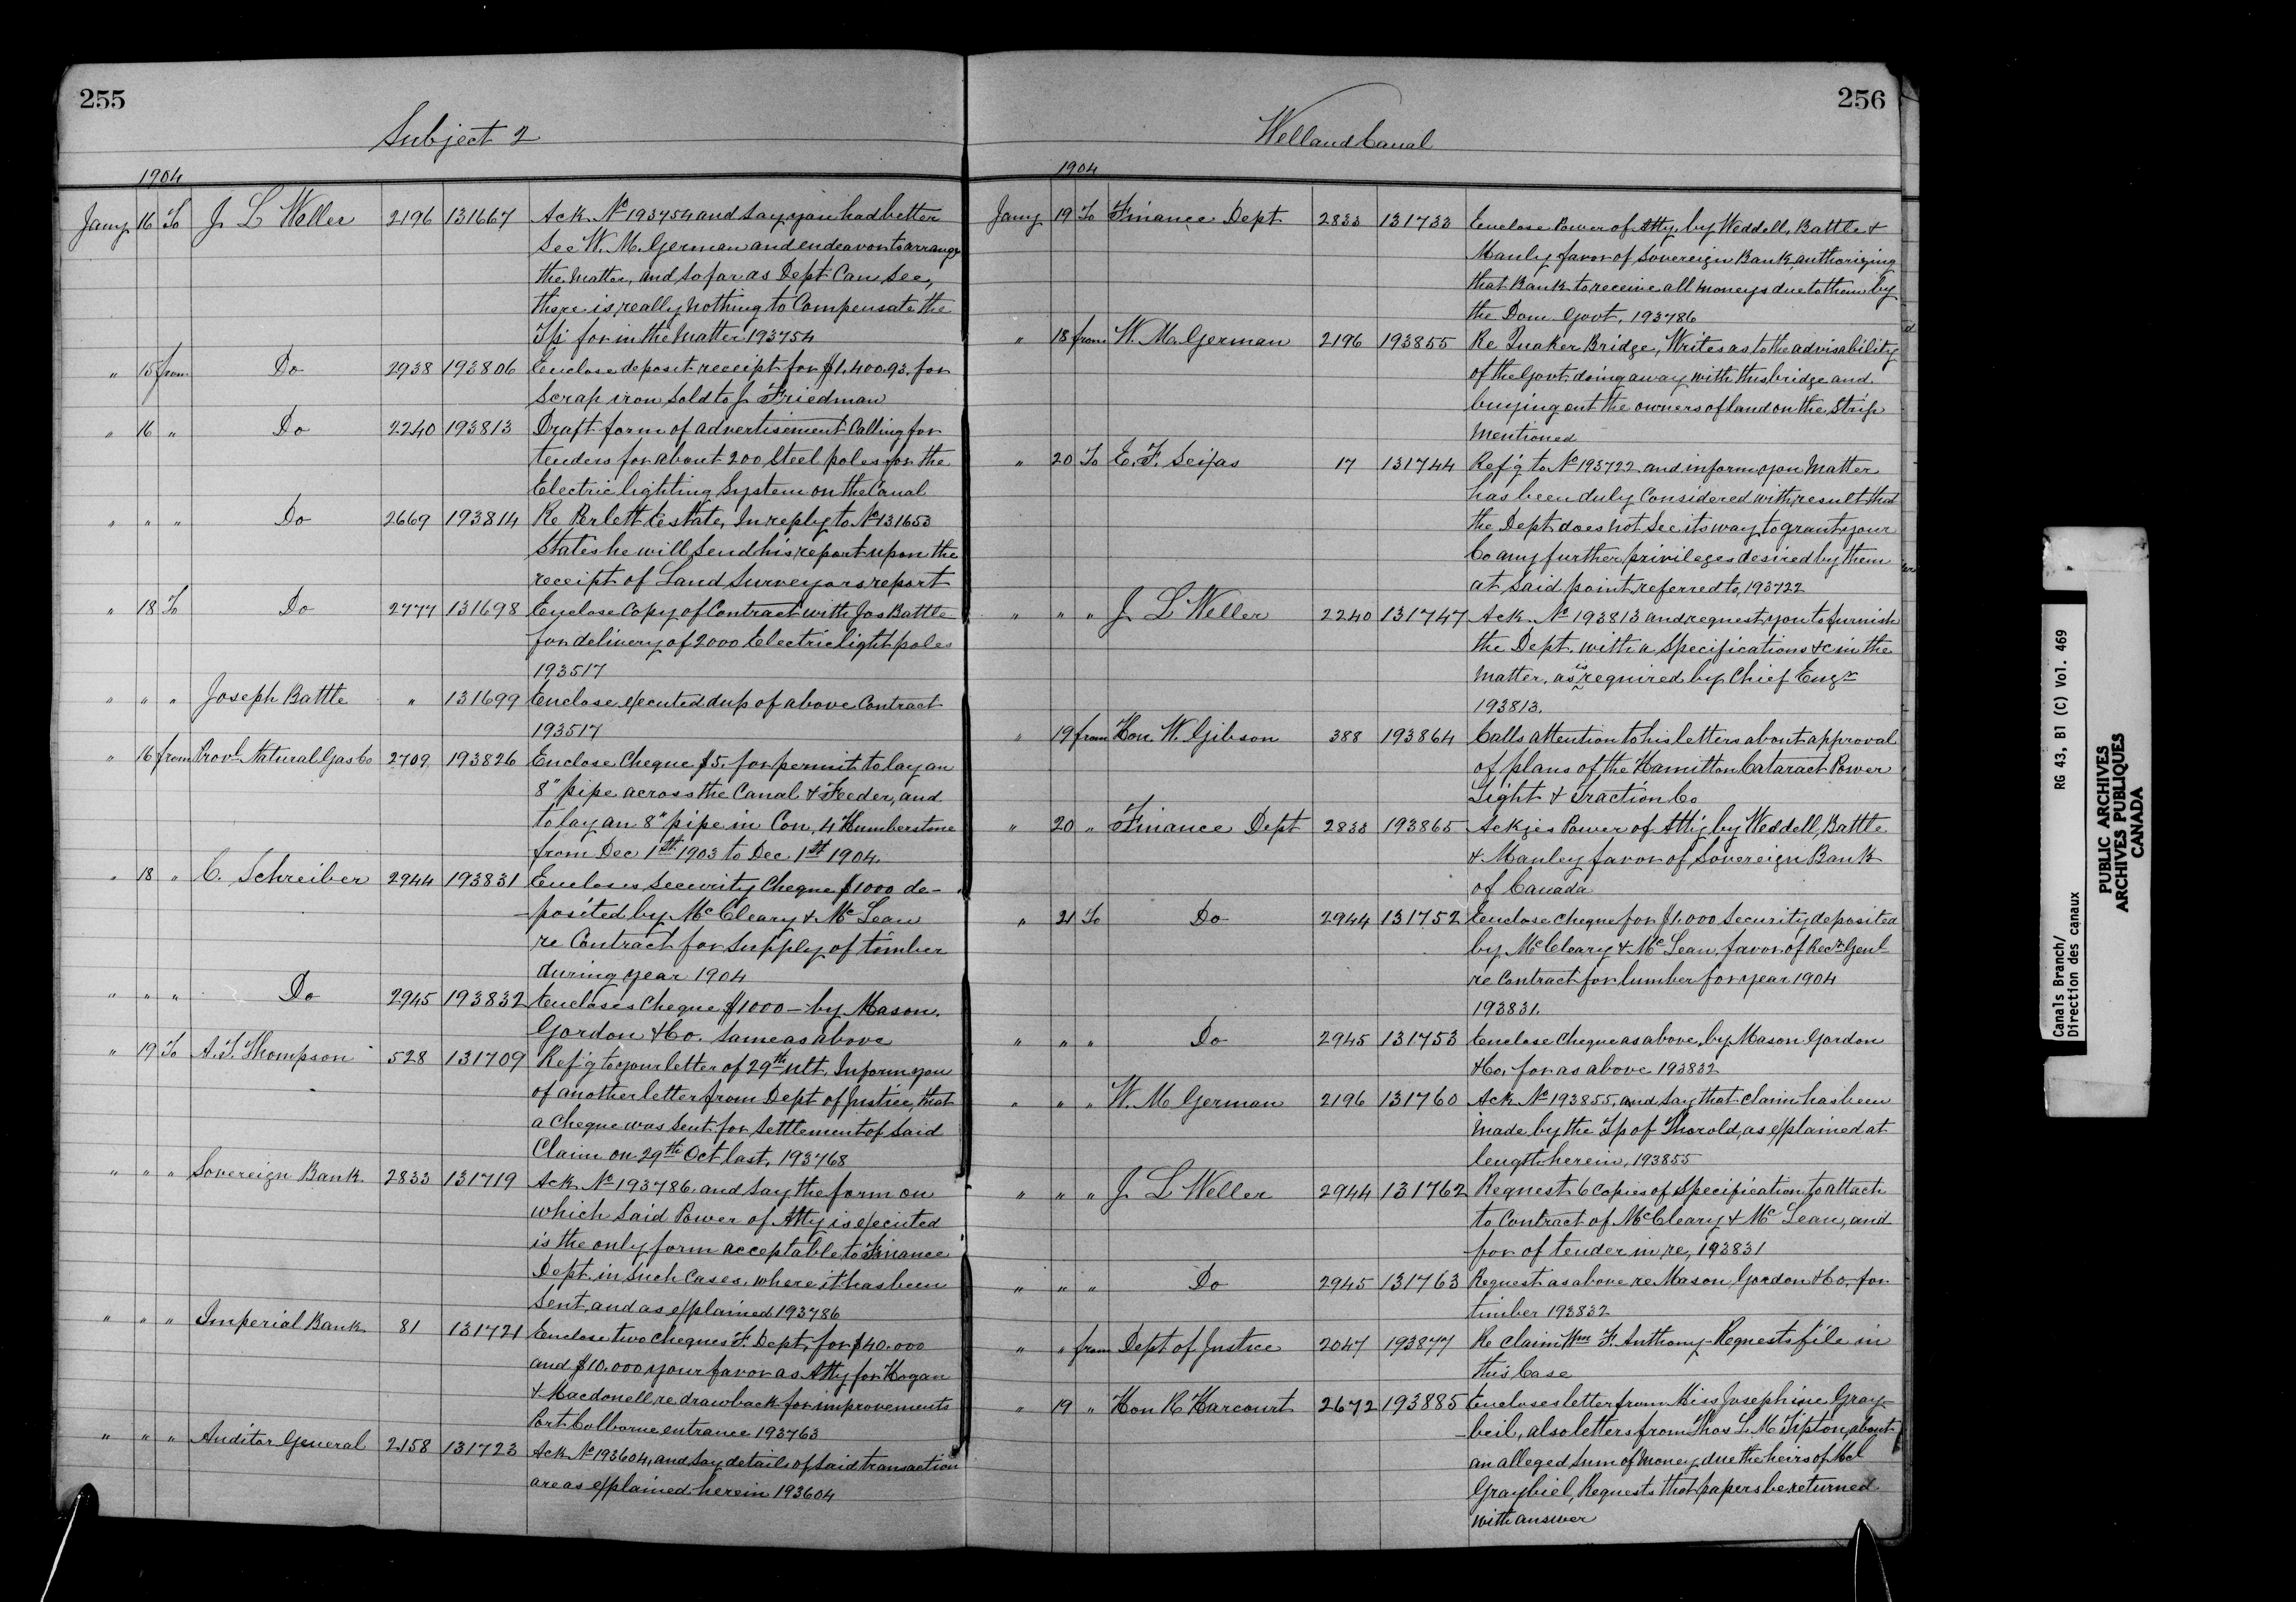 255
Subject 2
1904
Jany 16 To J L Weller 2196 131667 Ack No 193754 and say you had better
see W. M. German and endeavor to arrange
the matter, and so far as Dept can see,
there is really nothing to compensate the
Tp for in the matter 193754
" 15 from Do 2938 193806 Enclose deposit receipt for $1.400.93. for
scrap iron sold to J. Friedman
" 16 " Do 2240 193813 Draft form of advertisement calling for
tenders for about 200 steel poles for the
Electric lighting system on the Canal
" " " Do 2669 193814 Re Perlett Estate, In reply to No 131653
states he will send his report upon the
receipt of Land Surveyors report
" 18 To Do 2777 131698 Enclose copy of contract with Jos Battle
for delivery of 2000 Electric light poles
193517
" " " Joseph Battle " 131699 Enclose executed dup of above contract
193517
" 16 from Provl Natural Gas Co 2709 193826 Enclose Cheque $5. for permit to lay an
8" pipe across the Canal & Feeder, and
to lay an 8" pipe in Con. 4 Humberstone
from Dec 1st 1903 to Dec 1st 1904.
" 18 " C. Schreiber 2944 193831 Encloses security cheque $1000 de-
-posited by McCleary & McLean
re Contract for supply of timber
during year 1904
" " " Do 2945 193832 Encloses cheque $1000 - by Mason.
Gordon & Co. same as above
" 19 To A. T. Thompson 528 131709 Ref'g to your letter of 29th ult. Inform you
of another letter from Dept of Justice, that
a cheque was sent for settlement of said
claim on 29th Oct last. 193768
" " " Sovereign Bank. 2833 131719 Ack No 193786. and say the form on
which said Power of Atty is executed
is the only form acceptable to Finance
Dept. in such cases. where it has been
sent, and as explained 193786
" " " Imperial Bank 81 131721 Enclose two cheques F. Dept. for $40.000
and $10.000 your favor as Atty for Hogan
& Macdonell re drawback for improvements
Port Colborne entrance 193763
" " " Auditor General 2158 131723 Ack No 193604, and say details of said transaction
are as explained herein 193604
256
Welland Canal
1904
Jany 19 To Finance Dept 2833 131733 Enclose Power of Atty. by Weddell, Battle &
Manly favor of Sovereign Bank, authorizing
that Bank to receive all moneys due to them by
the Dom. Govt. 193786
" 18 from W. M. German 2196 193855 Re Quaker Bridge, Writes as to the advisability
of the Govt. doing away with this bridge and
buying out the owners of land on the strip
mentioned
" 20 To E. F. Seifas 17 131744 Ref'g to No 193722. and inform you matter
has been duly considered with result that
the Dept does not see its way to grant your
Co any further privileges desired by them
at said point referred to, 193722
" " " J L Weller 2240 131747 Ack No 193813 and request you to furnish
the Dept. with a specifications &c in the
matter. as is required by Chief Engr
193813.
" 19 from Hon. W. Gibson 388 193864 Calls attention to his letters about approval
of plans of the Hamilton Cataract Power
Light & Traction Co
" 20 " Finance Dept 2833 193865 Ackges Power of Atty by Weddell, Battle
& Manley favor of Sovereign Bank
of Canada
" 21 To Do 2944 131752 Enclose cheque for $1.000 security deposited
by McCleary & McLean, favor of Recr Genl
re contract for lumber for year 1904
193831.
" " " Do 2945 131753 Enclose cheque as above, by Mason Gordon
& Co. for as above 193832
" " " W. M German 2196 131760 Ack No 193855. and say that claim has been
made by the Tp of Thorold, as explained at
length herein, 193855
" " " J L Weller 2944 131762 Request 6 copies of specification to attach
to contract of McCleary & McLean, and
for of tender in re, 193831
" " " Do 2945 131763 Request as above re Mason Gordon & Co, for
timber 193832
" " from Dept of Justice 2047 193877 Re claim Wm F. Anthony - Requests file in
this Case
" 19 " Hon R Harcourt 2672 193885 Encloses letter from Miss Josephine Gray-
-beil, also letters from Thos L. M Tipton, about
an alleged sum of money due the heirs of Mcl
Graybiel, Requests that papers be returned
with answer
Canals Branch/ RG 43, B1 (C) Vol. 469
Direction des canaux
PUBLIC ARCHIVES
ARCHIVES PUBLIQUES
CANADA